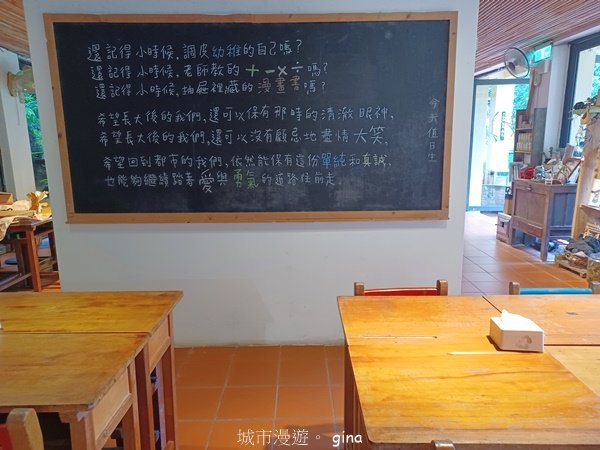 還記得小時候,調皮幼稚的自己嗎?
還記得小時候,老師教的+-×÷嗎?
還記得小時候,抽屜裡藏的漫畫書嗎?
希望長大後的我們,還可以保有那時的清澈眼神,
希望長大後的我們,還可以沒有顧忌地盡情大笑,
希望回到都市的我們,依然能保有這份單純和真誠,
也能夠繼續踏著愛與勇氣的道路往前走
今天值日生
城市漫遊。gina